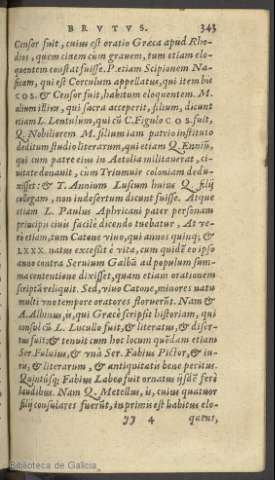 BRVTVS. 343
Censor fuit, cuius est oratio Græca apud Rho-
dios, quem ciuem cum grauem, tum etiam elo-
quentem constat fuisse. P. etiam Scipionem Na-
sicam, qui est Corculum appellatus, qui item bis
COS. & Censor fuit, habitum eloquentem. M.
alium illius, qui sacra acceperit, filium, dicunt
etiam L. Lentulum, qui cũ C. Figulo COS. fuit,
Q. Nobiliorem M. filium iam patrio instituto
deditum studio literarum, qui etiam Q. Enniũ,
qui cum patre eius in Aetolia militauerat, ci-
uitate donauit, cum Triumuir coloniam dedu-
xisset: & T. Annium Luscum huius Q. filij
collegam, non indesertum dicunt fuisse. Atque
etiam L. Paulus Aphricani pater personam
principis ciuis facilè dicendo tuebatur. At ve-
rò etiam, tum Catone viuo, qui annos quinq; &
LXXX. natus excessit è vita, cum quidẽ eo ipso
anno contra Seruium Galbã ad populum sum-
ma contentione dixisset, quam etiam orationem
scriptã reliquit. Sed, viuo Catone, minores natu
multi vno tempore oratores floruerũt. Nam &
A. Albinus, is, qui Græcè scripsit historiam, qui
consul cũ L. Lucullo fuit, & literatus, & diser-
tus fuit: & tenuit cum hoc locum quẽdam etiam
Ser. Fuluius, & vnà Ser. Fabius Pictor, & iu-
ris, & literarum, & antiquitatis bene peritus.
Quintúsq; Fabius Labeo fuit ornatus ijsdẽ ferè
laudibus. Nam Q. Metellus, is, cuius quatuor
filij consulares fuerũt, in primis est habitus elo-
yy 4 quens,
Biblioteca de Galicia